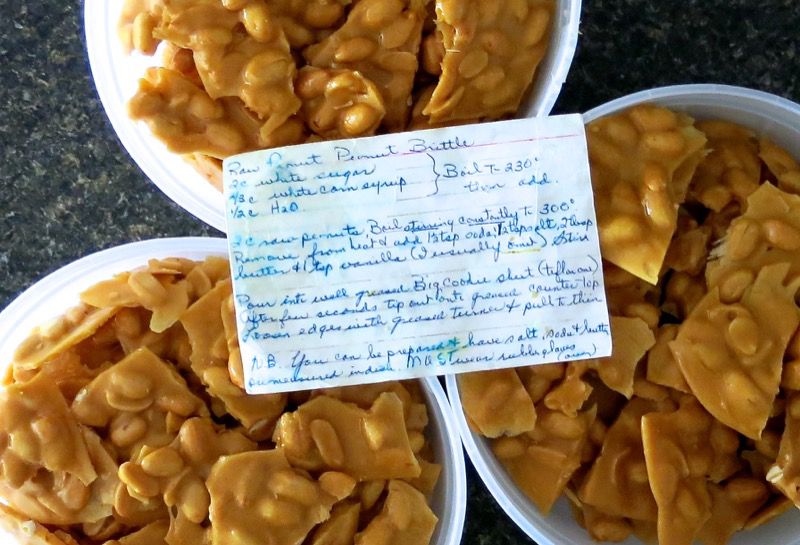 Raw Peanut Peanut Brittle
2c white sugar
2/3c white corn syrup } Boil T- 230°
1/2c H2O then add
3c raw peanuts Boil stirring constantly T- 300°
Remove from heat & add 1 1/2 tsp soda, tsp salt, 2 tbsp
butter & 1 tsp vanilla (I usually omit) Stir
Pour into well greased Big Cookie sheet (teflon one)
After few seconds tip out onto greased counter top
Loosen edges with greased turner & pull to thin
N.B. You can be prepared & have salt, soda & butter
premeasured in dish. MUST wear rubber gloves (over)